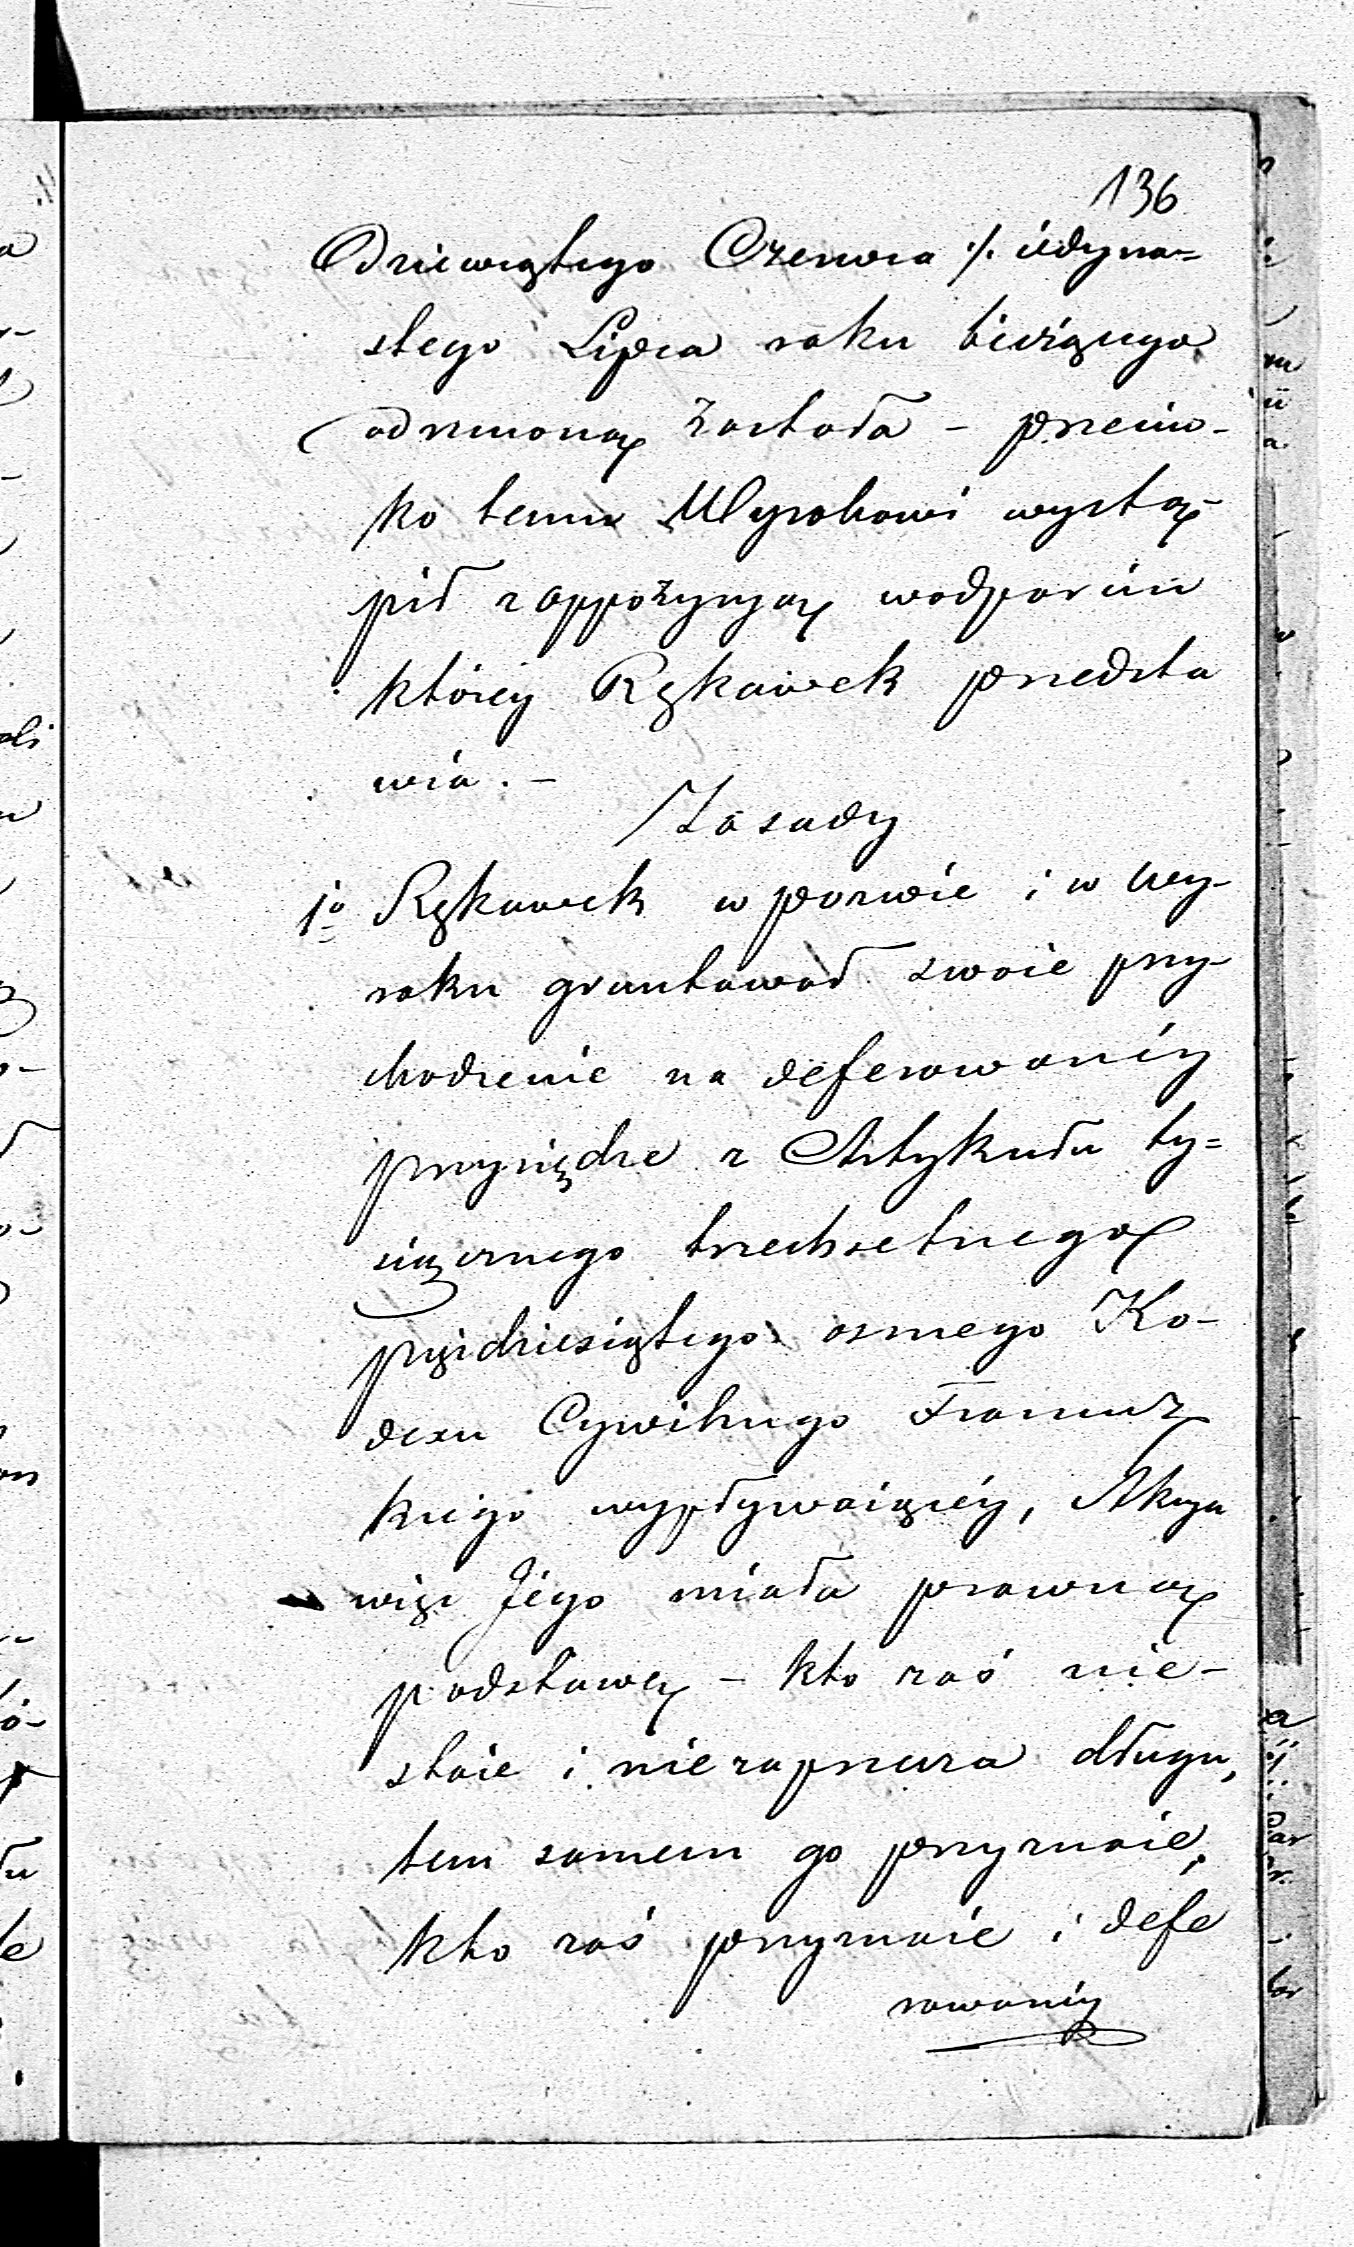 136
Dziewiątego Czerwca ./. iedyna=
stego Lipca roku bieżącego
odmoną została – przeciw-
ko temu Wyrokowi wystą-
pił z oppozycyą w odparciu
któréy Rękawek przedsta
wia. –
Zasady
1o Rękawek w pozwie i w wy-
roku gruntował swoie przy-
chodzenie na deferowanéy
przysiędze z Artykułu ty=
siącznego trzechsetnego
pięćdziesiątego osmego Ko-
dexu Cywilnego Francuz
kiego wypływaiącéy, Akcya
więc Jego miała prawną
podstawę – kto zaś nie-
staie i niezaprzecza długu,
tem samem go przyznaie,
kto zaś przyznaie i defe
rowanéy